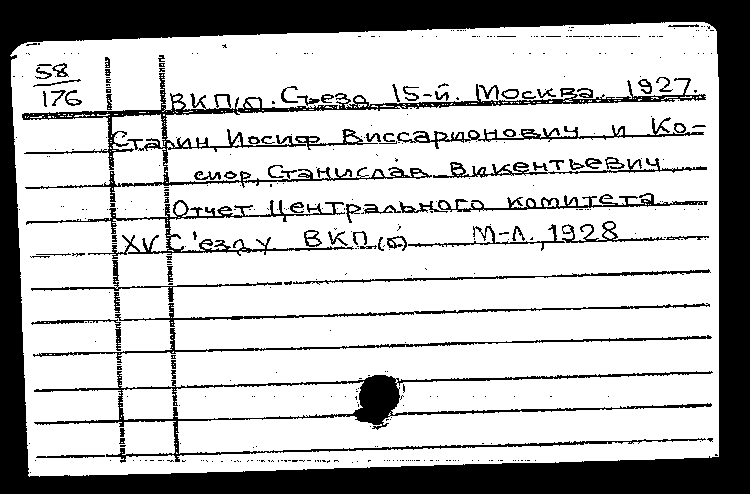 58
176
ВКП(б). Съезд, 15-й. Москва. 1927.
Сталин, Иосиф Виссарионович и Ко=
сиор, Станислав Викентьевич
Отчет Центрального комитета
XV С'езду ВКП(б) М-Л., 1928